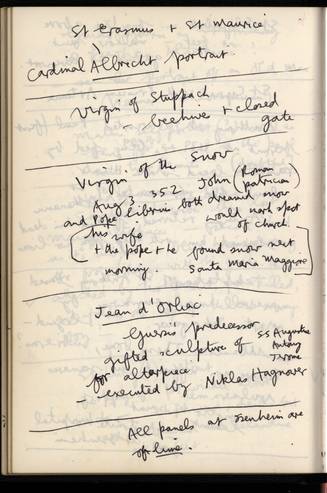 St Erasmus + St Maurice
Cardinal Albricht portrait
Virgin of Stuppach
- beehive + closed
gate
Virgin of the Snow
Aug 3, 352 John (Roman
patrician)
and Pope Liberius both dreamed snow
his wife would mark spot
of church.
+ the pope + he found snow next
morning. Santa Maria Maggiore
Jean d'Orliac
Guersi's predecessor
gifted sculpture of SS Augustine
Antony
Jerome
for altarpiece
- executed by Niklas Hagnower
All panels at Isenheim are
of lime.